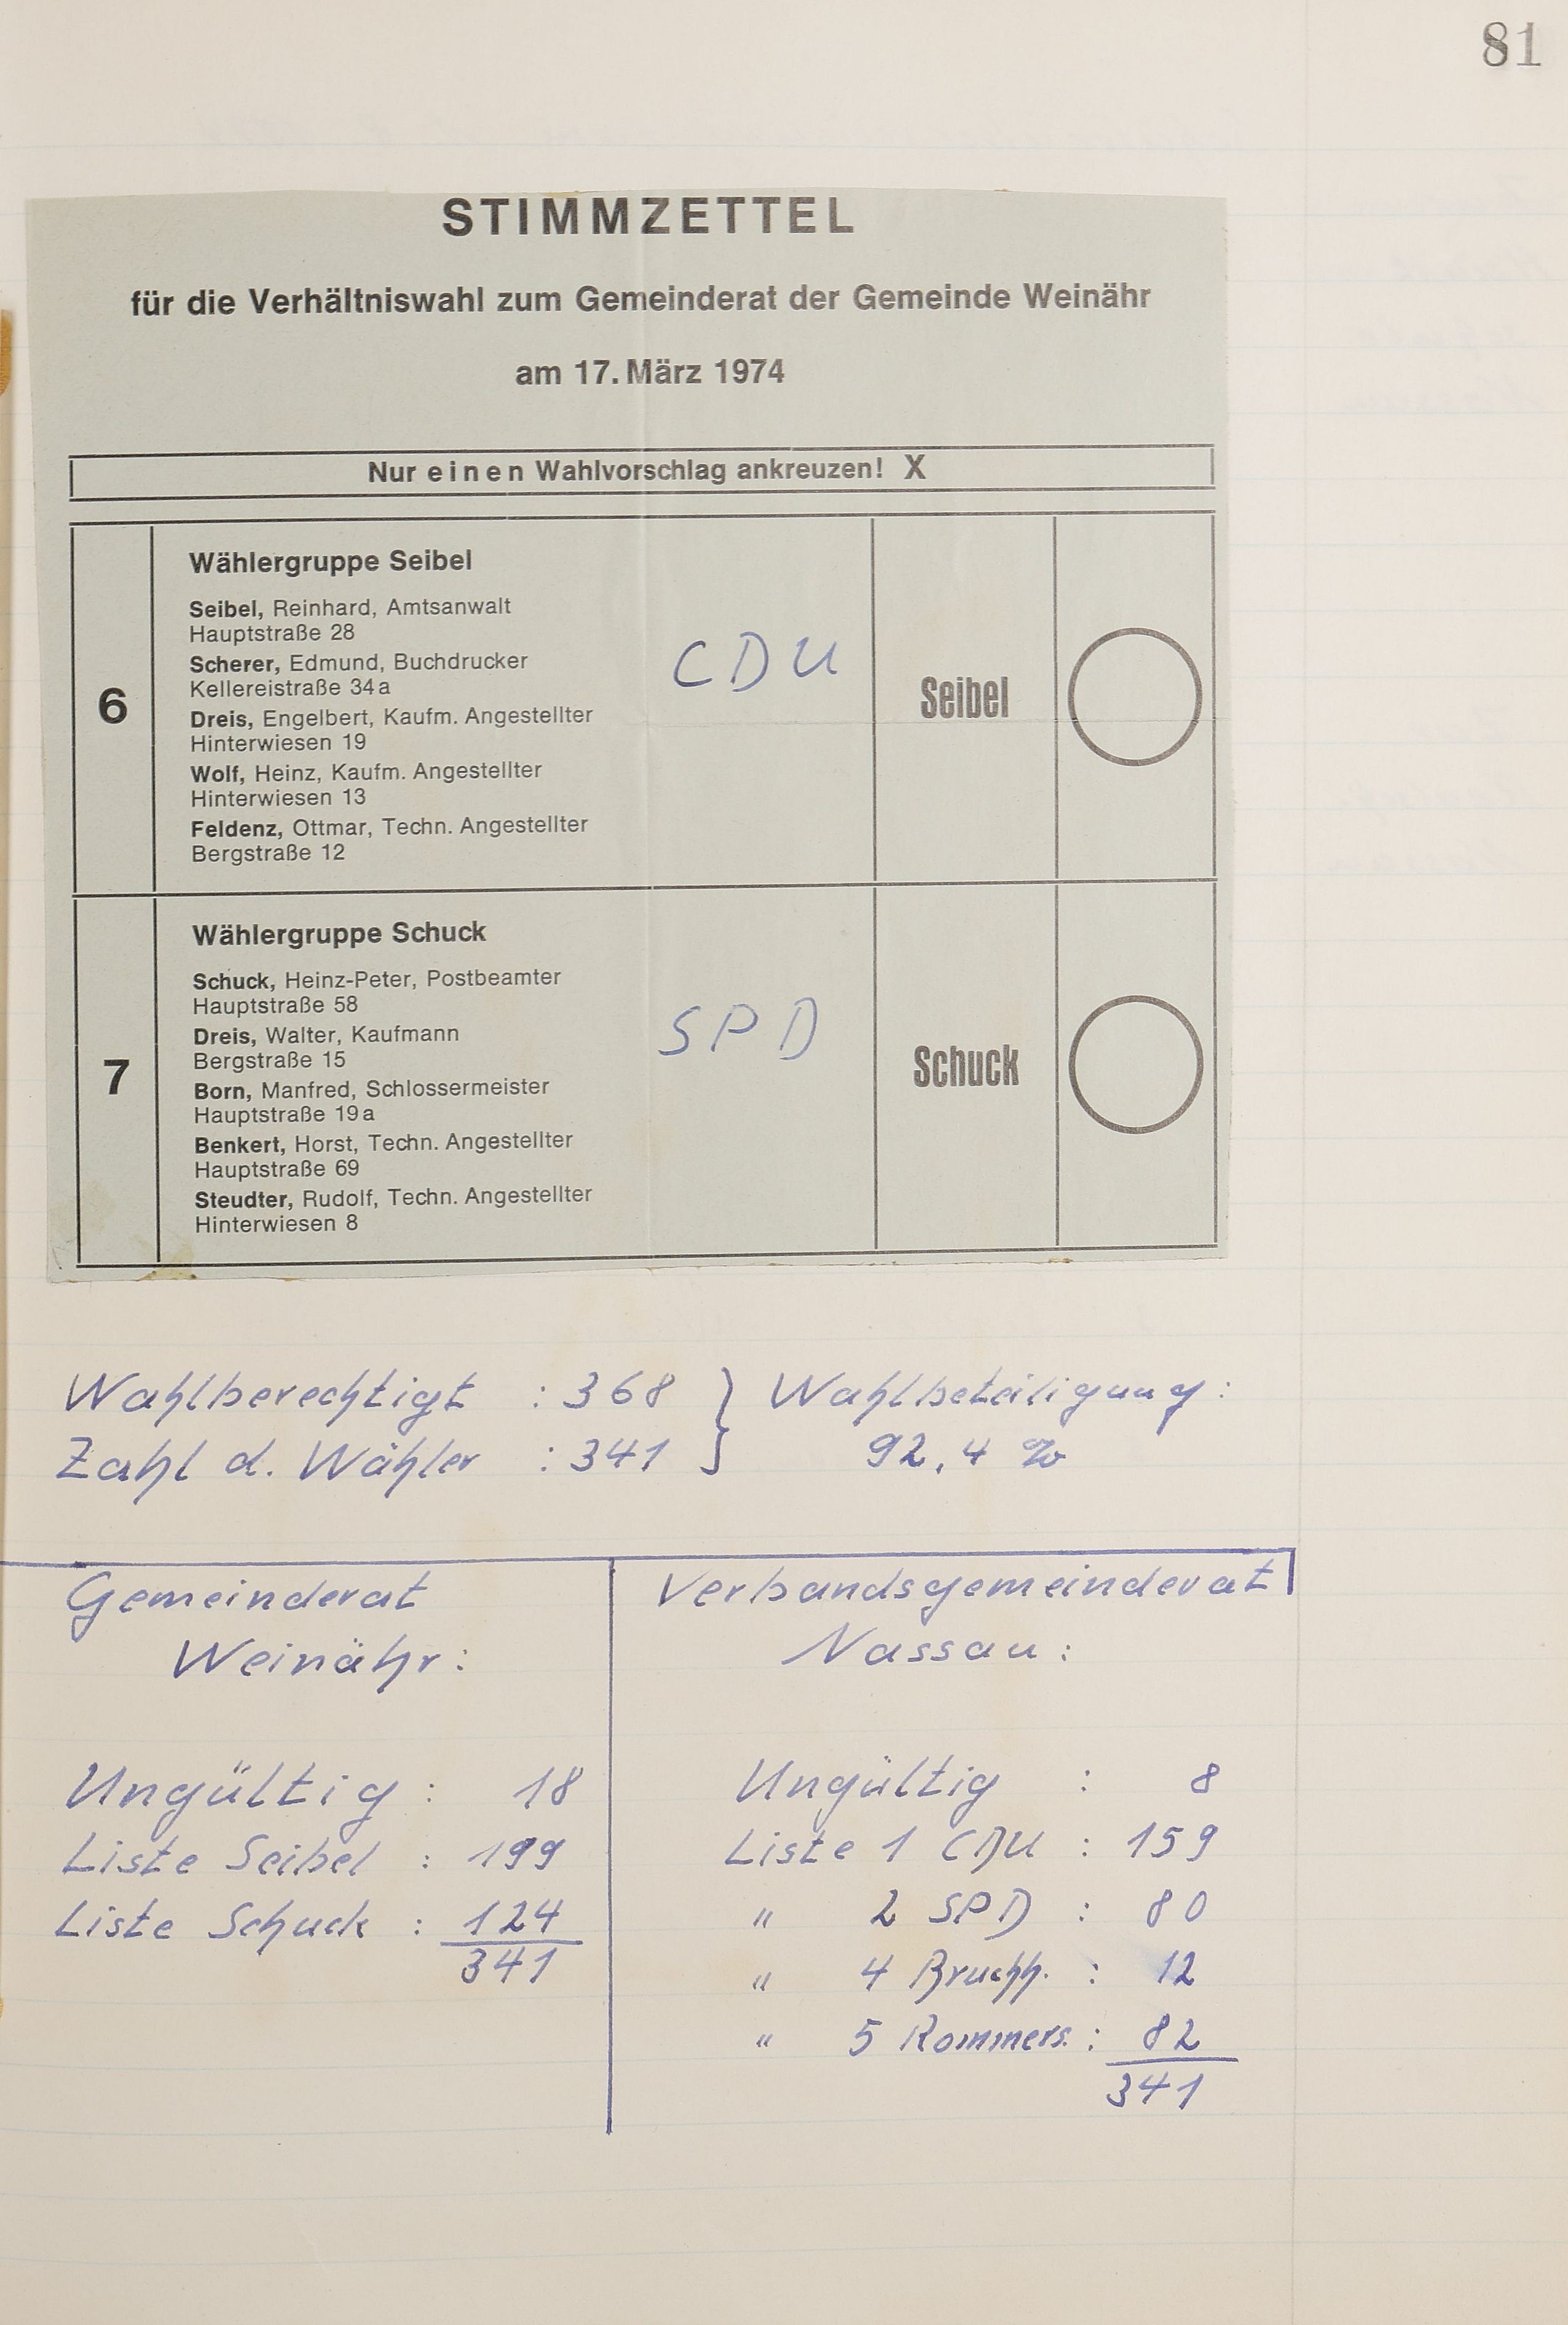 81
STIMMZETTEL
für die Verhältniswahl zum Gemeinderat der Gemeinde Weinähr
am 17. März 1974
Nur einen Wahlvorschlag ankreuzen! X
6
Wählergruppe Seibel
Seibel, Reinhard, Amtsanwalt
Hauptstraße 28
Scherer, Edmund, Buchdrucker
Kellereistraße 34a
Dreis, Engelbert, Kaufm. Angestellter
Hinterwiesen 19
Wolf, Heinz, Kaufm. Angestellter
Hinterwiesen 13
Feldenz, Ottmar, Techn. Angestellter
Bergstraße 12
CDU
Seibel
7
Wählergruppe Schuck
Schuck, Heinz-Peter, Postbeamter
Hauptstraße 58
Dreis, Walter, Kaufmann
Bergstraße 15
Born, Manfred, Schlossermeister
Hauptstraße 19a
Benkert, Horst, Techn. Angestellter
Hauptstraße 69
Steudter, Rudolf, Techn. Angestellter
Hinterwiesen 8
SPD
Schuck
Wahlberechtigt : 368 } Wahlbeteiligung :
Zahl d. Wähler : 341 } 92,4 %
Gemeinderat
Weinähr :
Ungültig : 18
Liste Seibel : 199
Liste Schuck : 124
341
Verbandsgemeinderat
Nassau :
Ungültig : 8
Liste 1 CDU : 159
" 2 SPD : 80
" 4 Bruchh. : 12
" 5 Rommers. : 82
341